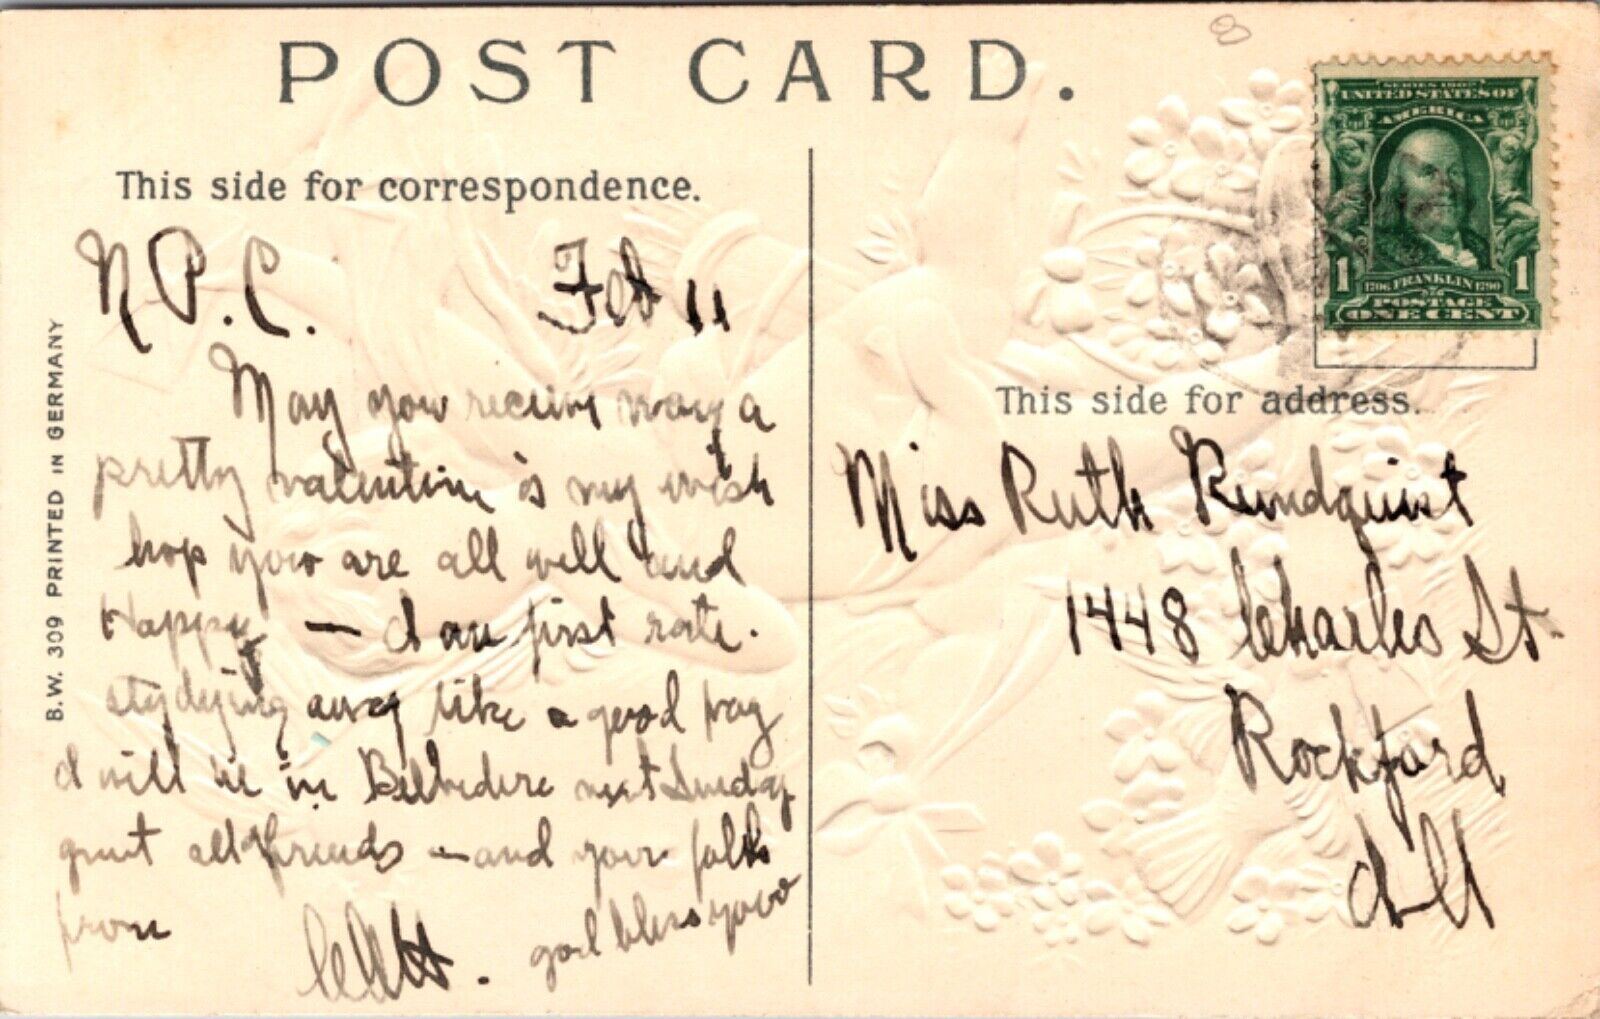 POST CARD.
This side for correspondence.
N. P. C. Feb 11
May you receive many a
pretty valentine is my wish
hop you are all well and
Happy — I am first rate.
stydying away like a good
I will be in Belvedere next Sunday
greet all friends — and your folks
from god bless you
B.W. 309 PRINTED IN GERMANY
SERIES 1902
UNITED STATES OF
AMERICA
1 1
1706 FRANKLIN 1790
POSTAGE
ONE CENT
This side for address.
Miss Ruth Rundquist
1448 Charles St.
Rockford
Ill